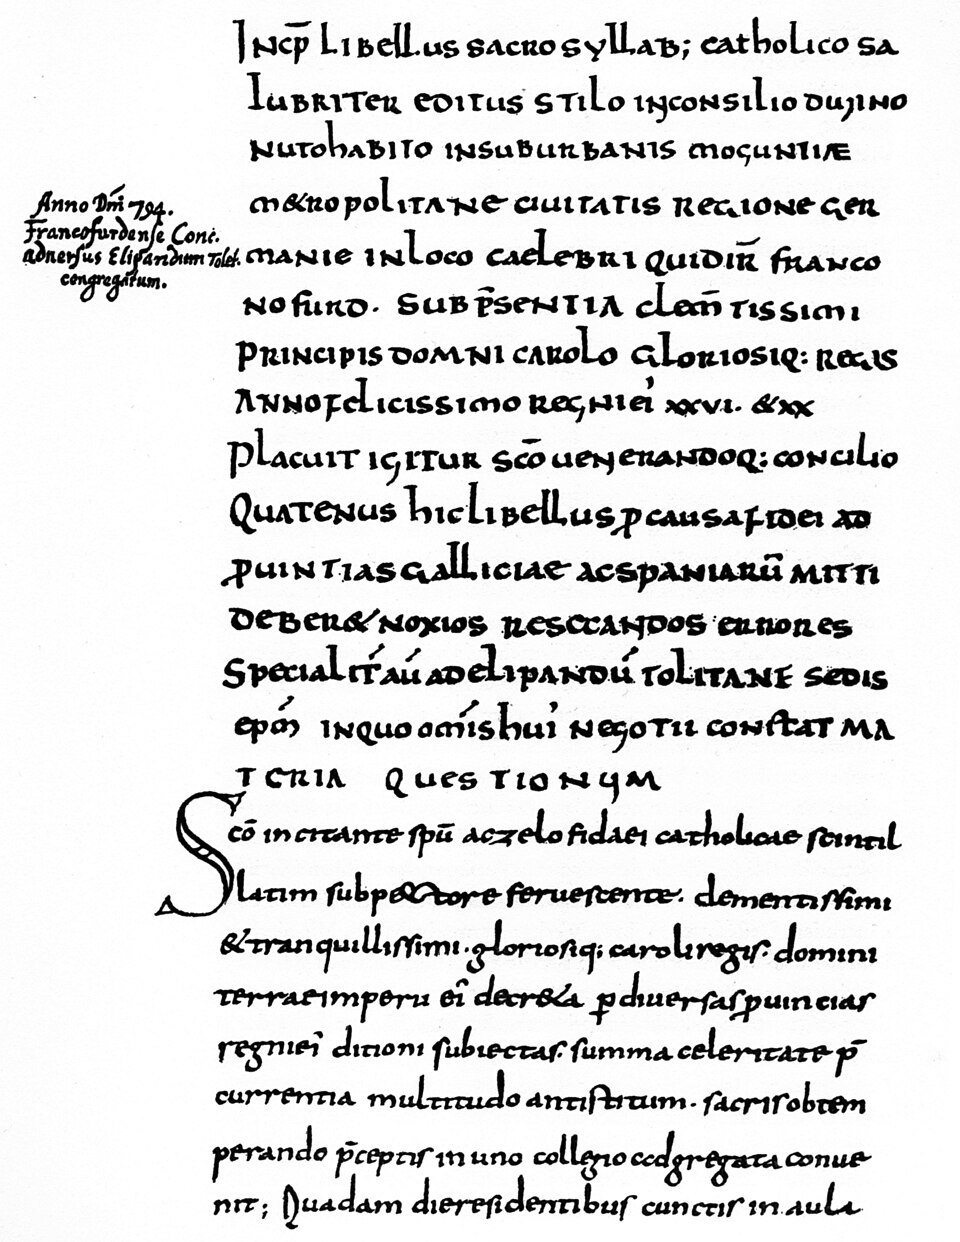 INCP̄ LIBELLUS SACROSYLLAB; CATHOLICO SA
LUBRITER EDITUS STILO INCONSILIO DUJINO
NUTOHABITO INSUBURBANIS MOGUNTIÆ
M&ROPOLITANE CIUITATIS REGIONE GER
MANIE INLOCO CAELEBRI QUIDIR̄ FRANCO
NOFURD. SUB PS̄ENTIA CLEM̄TISSIMI
PRINCIPIS DOMNI CAROLO GLORIOSIQ: REGIS
ANNO FELICISSIMO REGNIEI' XXVI. &XX
PLACUIT IGITUR SCŌ UENERANDOQ: CONCILIO
QUATENUS HICLIBELLUS ꝑCAUSA FIDEI AD
ꝓUINTIAS GALLICIAE ACSPANIARŪ MITTI
DEBER& NOXIOS RESECANDOS ERRORES
SPECIALIT̄ AŪ ADELIPANDŪ TOLITANE SEDIS
EPM̄ INQUO OMĪS HUI' NEGOTII CONSTAT MA
TERIA QUESTIONUM
Anno Dm̄ 794.
Francofurdense Conc.
adversus Elipandum Tolet.
congregatum.
Scō incitante spū aczelo fidaei catholicae scintil
latim subpe&ctore feruescente. clementissimi
&tranquillissimi. gloriosiq; caroli regis. domini
terrae imperu ei' decr&a ꝑ diuersas ꝓuincias
regniei' ditioni subiectas. summa celeritate p̄
currentia multitudo antistitum. sacris obtem
perando p̄ceptis in uno collegio ccdgregata conue
nit; Quadam die residentibus cunctis in aula